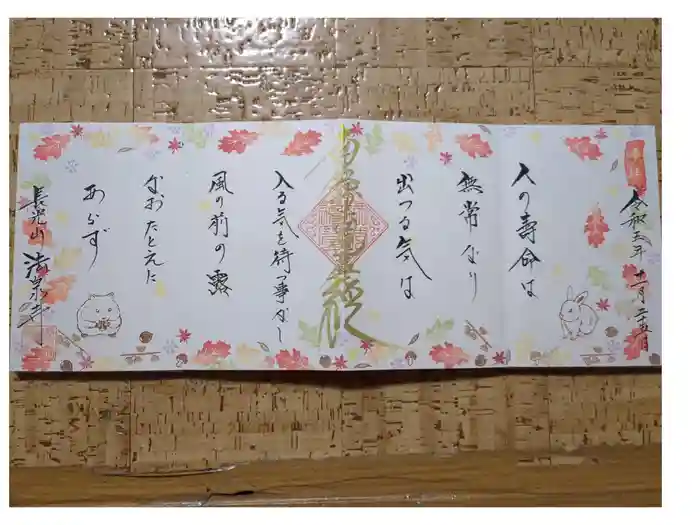 奉拝
令和五年 十一月二十五日
人の寿命は
無常なり
出つる気は
南無妙法蓮華経
入る気を待つ事なし
風の前の露
なおたとえに
あらず
長光山 法泉寺